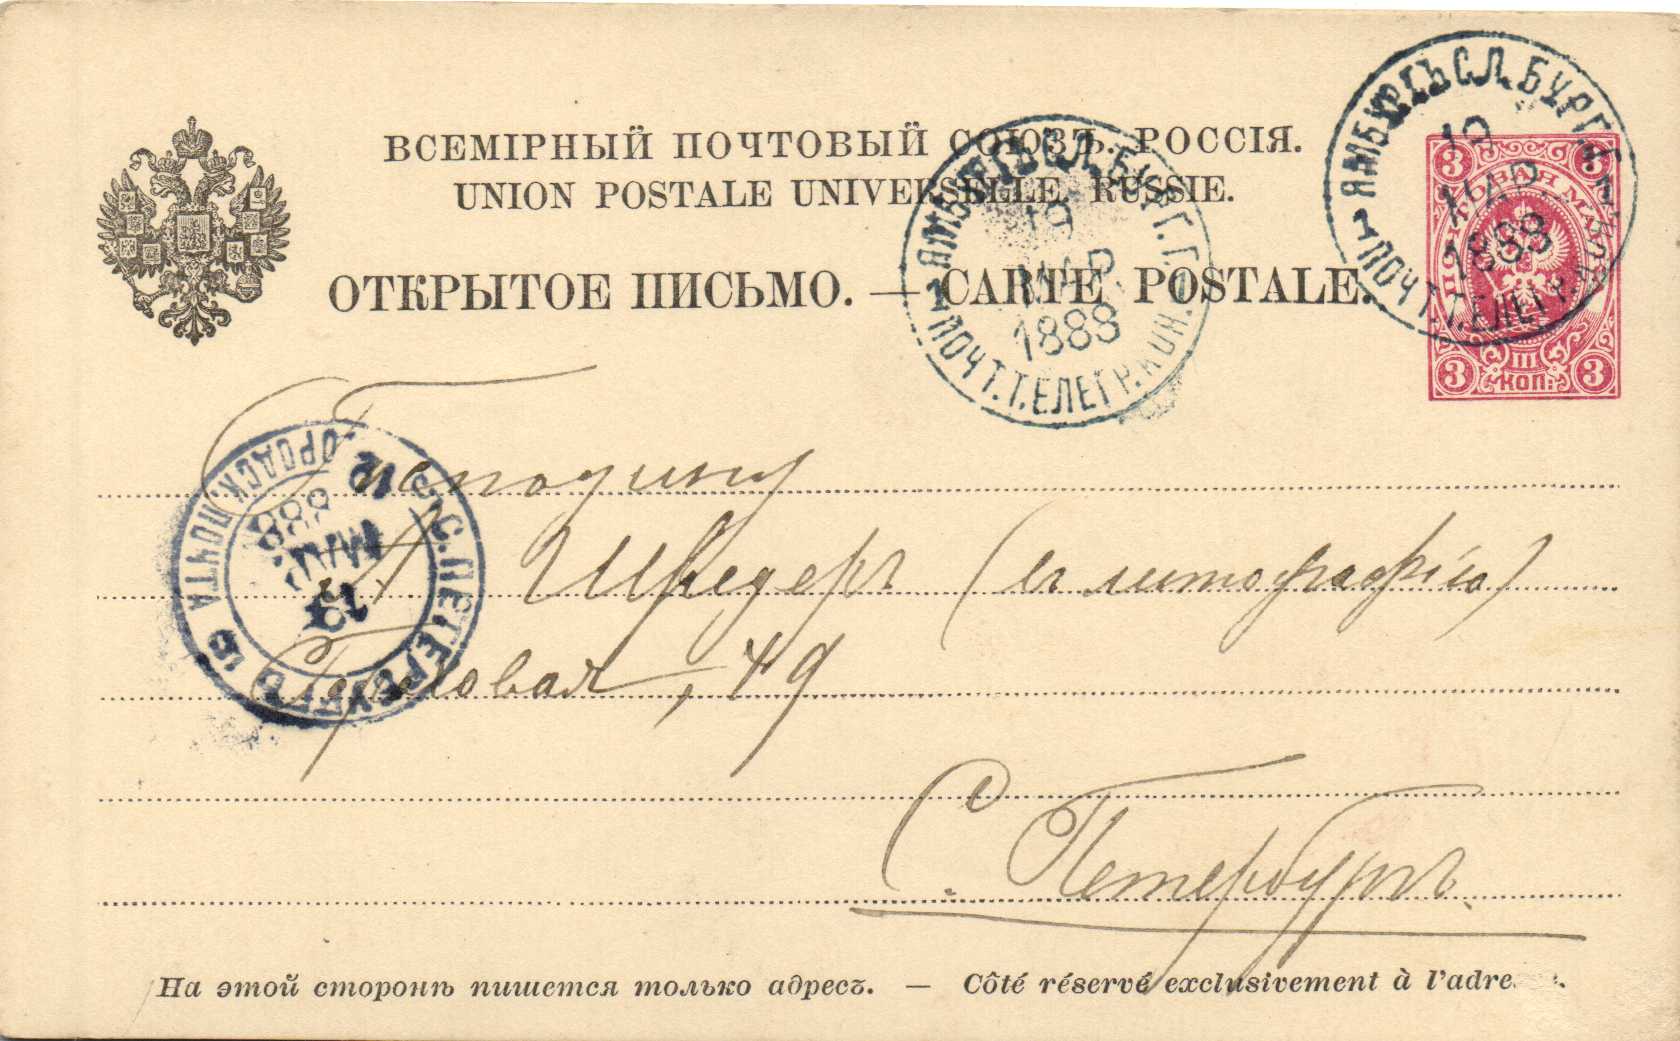 ВСЕМІРНЫЙ ПОЧТОВЫЙ СОЮЗЪ. РОССІЯ.
UNION POSTALE UNIVERSELLE. RUSSIE.
ОТКРЫТОЕ ПИСЬМО. — CARTE POSTALE.
ЯМБУРГЪ С.П.БУРГ. Г.
19
МАР
1888
ПОЧТ. ТЕЛЕГР. КОН.
1
ЯМБУРГЪ С.П.БУРГ. Г.
19
МАР
1888
ПОЧТ. ТЕЛЕГР.
1
3 3
ПОЧТОВАЯ МАРКА
3 III КОП. 3
С.ПЕТЕРБУРГЪ
ГОРОДСК. ПОЧТА
12
888
МАР
19
Господину
А Шредеръ (въ литографію)
Гороховая, 49
С. Петербургъ.
На этой сторонѣ пишется только адресъ. — Côté réservé exclusivement à l'adre